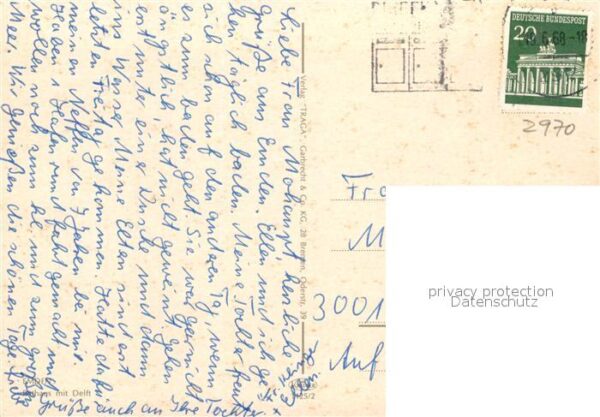 Liebe Frau Mohaupt herzliche
Grüße aus Emden. Ellen und ich ge-
hen täglich baden. Meine Tochter freut
sich schon auf den anderen Tag, wenn
es zum baden geht. Sie war gar nicht
ängstlich, hat nicht geweint. Eben
erst unter eine Dusche und dann
ins Wasser. Meine Eltern sind erst
letzten Freitag gekommen. Hatte dafür
meinen Neffen von 7 Jahren bei mir.
Haben 1 Hafenrundfahrt gemacht und
wollen noch zum kl. und zum großen
Meer. Wir genießen die schönen Tage.
Grüße auch an Ihre Tochter
Verlag "TRAGA", Garbrecht & Co. KG, 28 Bremen, Oderstr. 39
Rathaus mit Delft
DEUTSCHE BUNDESPOST
20
6.68-18
2970
Fra
M
3001
Auf
privacy protection
Datenschutz